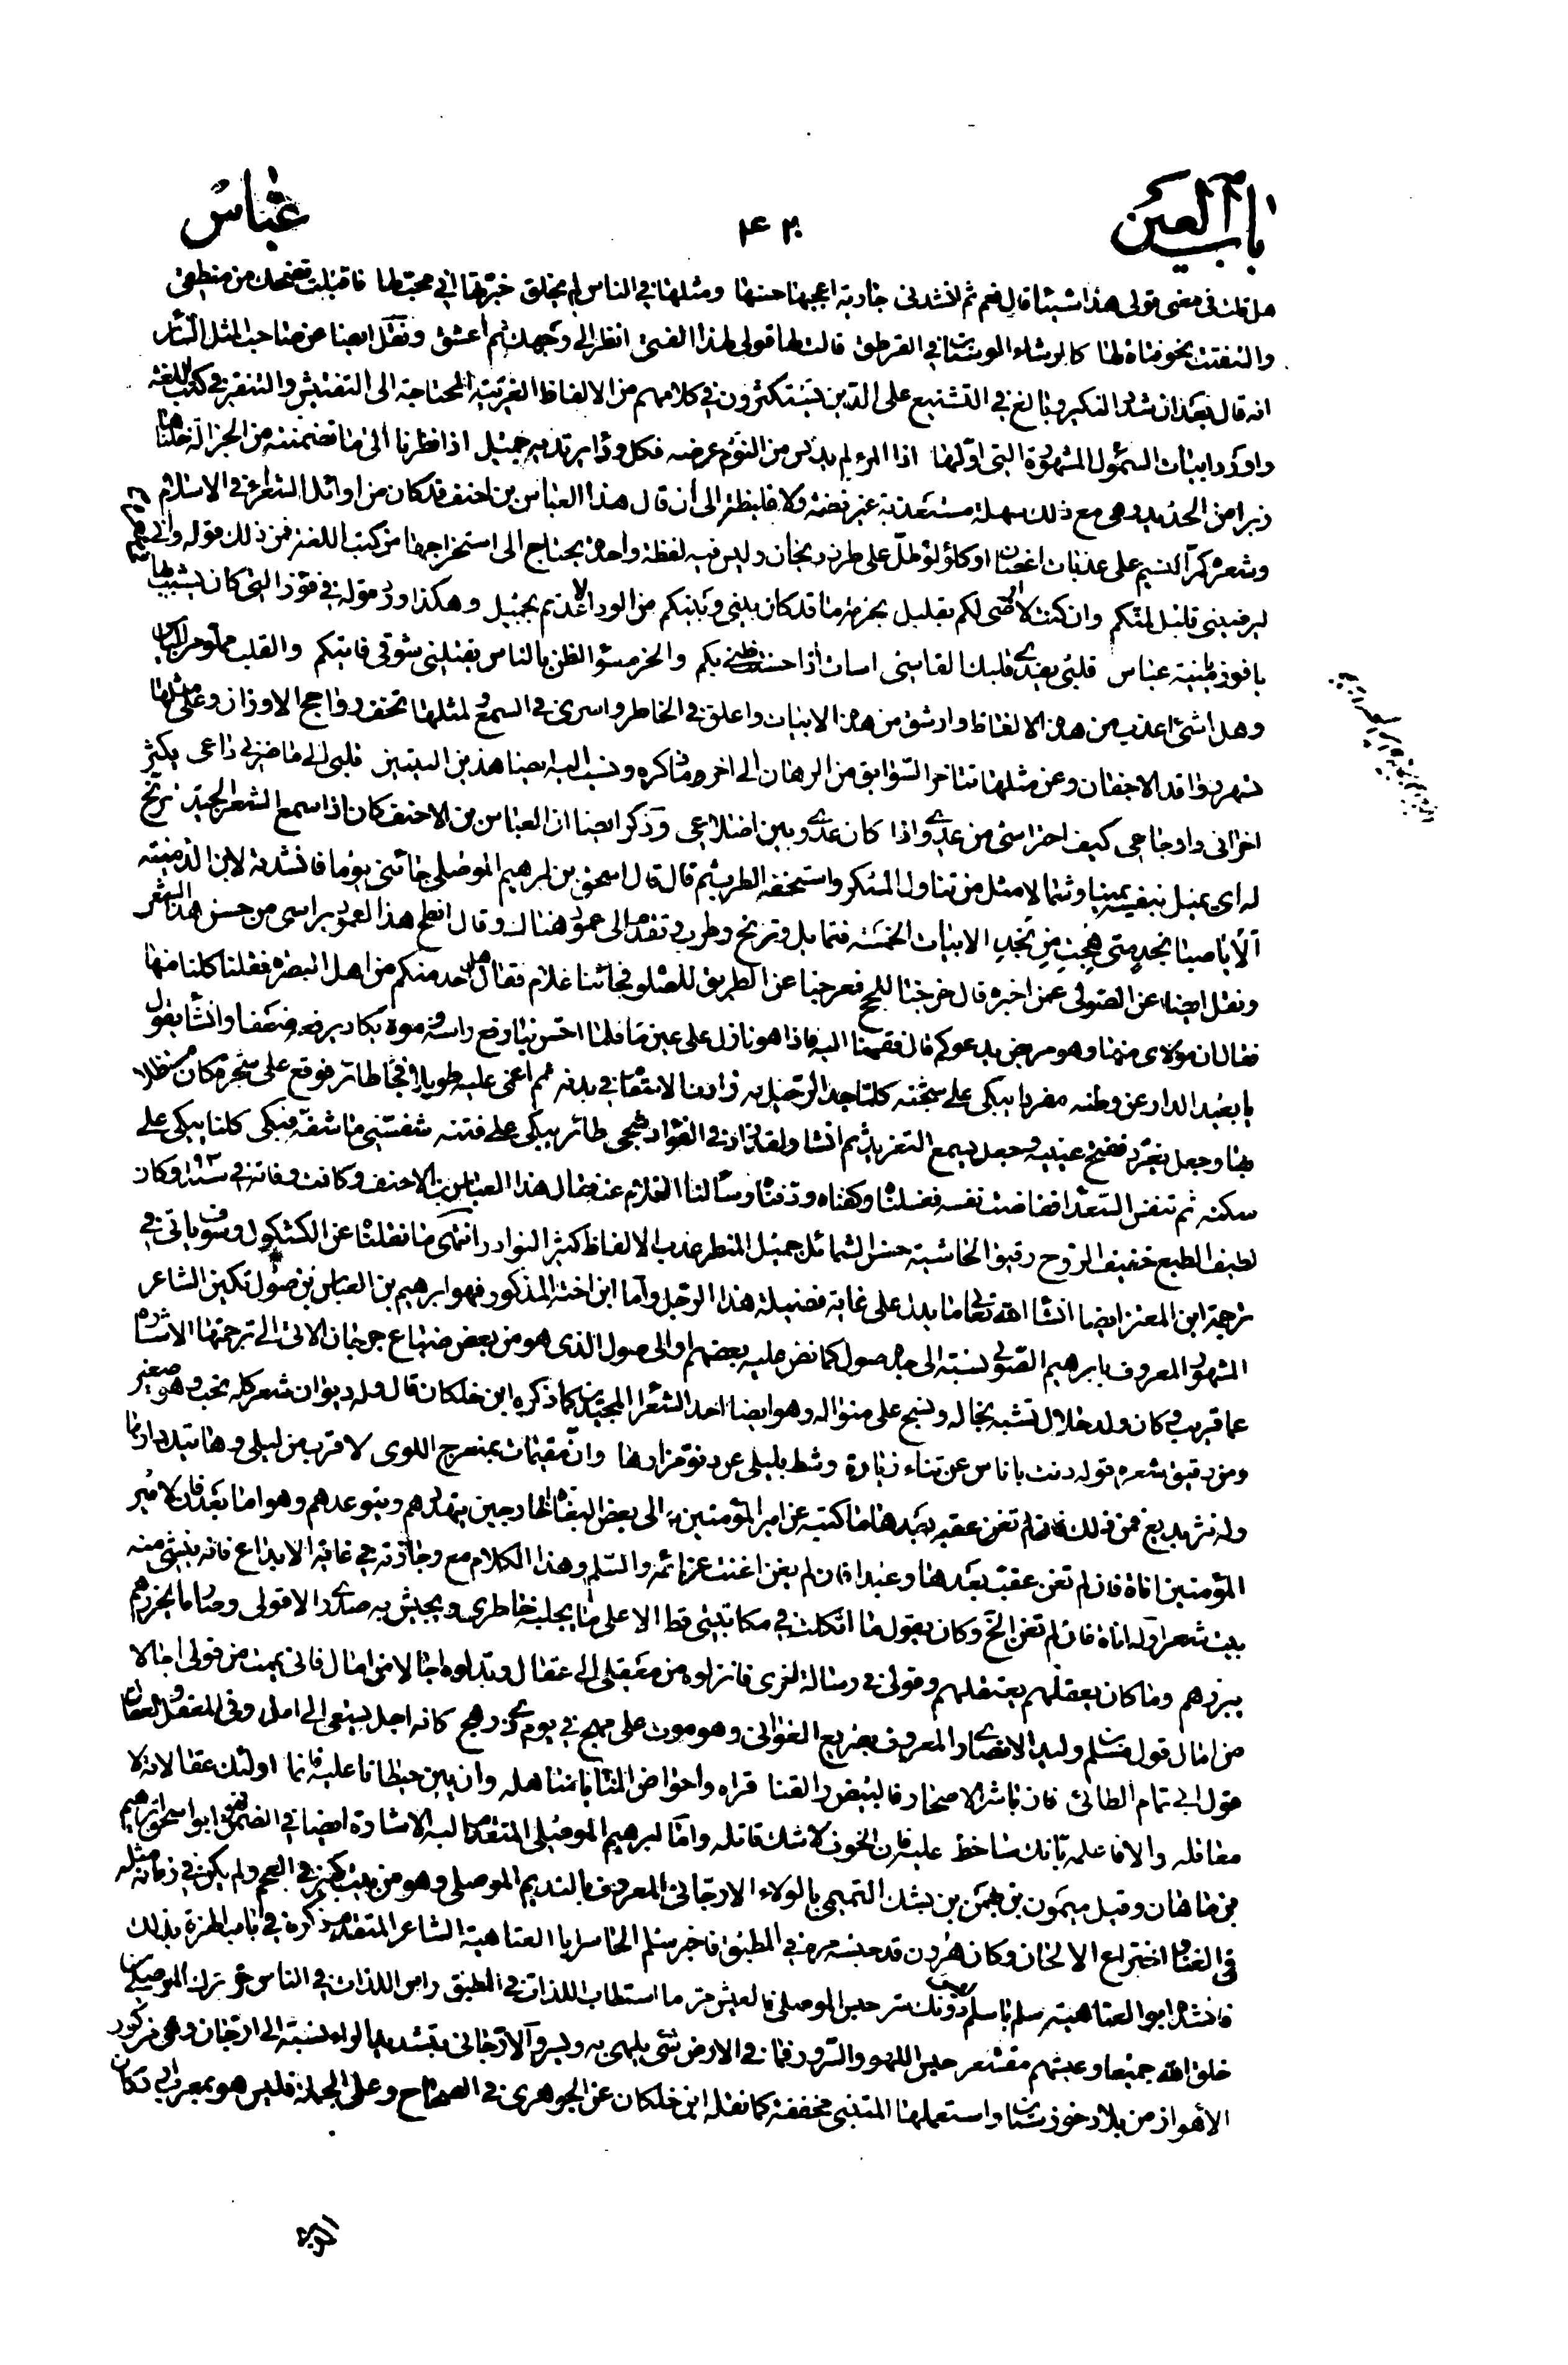 باب العين
٤٣٠
عباس
هل قلت فى معنى قولى هذا شيئا قال نعم ثم انشدنى جارية اعجبها حسنها ومثلها فى الناس لم يخلق خبرتها انى محب لها فاقبلت تضحك من منطقى
والتفتت نحو فتاة لها كالرشاء الوسنان فى القرطق قالت لها قولى لهذا الفتى انظر الى وجهك ثم اعشق ونقل ايضا عن صاحب المثل السائر
انه قال بعد ان شدد النكير وبالغ فى التشنيع على الذين يستكثرون فى كلامهم من الالفاظ الغريبة المحتاجة الى التفتيش والتنقير فى كتب اللغة
واورد ابيات السموئل المشهورة التى اولها اذا المرء لم يدنس من اللؤم عرضه فكل رداء يرتديه جميل اذا نظرنا الى ما تضمنته من الجزالة خلناها
زبرا من الحديد وهى مع ذلك سهلة مستعذبة غير فضة ولا غليظة الى أن قال هذا العباس بن احنف قد كان من اوائل الشعراء فى الاسلام
وشعره كمر النسيم على عذبات اغصان او كلؤلؤ طل على طرر ريحان وليس فيه لفظة واحدة يحتاج الى استخراجها من كتب اللغة فمن ذلك قوله وانى
ليرضينى قليل نوالكم وان كنت لا ارضى لكم بقليل بحرمة ما قد كان بينى وبينكم من الود الا عدتم بجميل وهكذا ورد قوله فى فوز التى كان يشبب بها
يا فوز يا منية عباس قلبى يفدى قلبك القاسى اسات اذ احسنت ظنى بكم والحزم سوء الظن بالناس يقلقنى شوقى فاتيكم والقلب مملو من الياس
وهل شئ اعذب من هذه الالفاظ وارشق من هذه الابيات واعلق فى الخاطر واسرى فى السمع ولمثلها تخف رواجح الاوزان وعلى مثلها
تسهر رواقد الاجفان وعن مثلها تتاخر السوابق من الرهان الى اخر ما ذكره ونسب اليه ايضا هذين البيتين قلبى الى ما ضرنى داعى يكثر
احزانى واوجاعى كيف احتراسى من عدوى اذا كان عدوى بين اضلاعى وذكر ايضا ان العباس بن الاحنف كان اذا سمع الشعر الجيد ترنح
له اى يميل بنفسه يمينا وشمالا مثل من تناول المسكر واستخفه الطرب ثم قال قال اسحق بن ابرهيم الموصلى جائنى يوما فانشدته لابن الدمينة
الا يا صبا نجد متى هجت من نجد الابيات الخمسة فتمايل وترنح وطرب وتقدم الى عمود هناك وقال انطح هذا العمود براسى من حسن هذا الشعر
ونقل ايضا عن الصولى عمن اخبره قال خرجنا للحج فعرجنا عن الطريق للصلوة فجائنا غلام فقال هل احد منكم من اهل البصره فقلنا كلنا منها
فقال ان مولاى منها وهو مريض يدعوكم قال فقمنا اليه فاذا هو نازل على عين ما فلما احس بنا رفع راسه وهو لا يكاد يرفعه ضعفا وانشا يقول
يا بعيد الدار عن وطنه مفردا يبكى على شجنه كلما جد الرحيل به زادت الاسقام فى بدنه ثم اغمى عليه طويلا فجا طائر فوقع على شجرة كان مستظلا
بها وجعل يغرد ففتح عينيه وجعل يسمع التغريد ثم انشا ولقد زاد فى الفؤاد شجى طائر يبكى على فننه شفنى ما شفه فبكى كلنا يبكى على
سكنه ثم تنفس الصعداء ففاضت نفسه فغسلناه وكفناه ودفناه وسألنا الغلام عنه فقال هذا العباس بن الاحنف وكانت وفاته فى سنة ١٩٢ وكان
لطيف الطبع خفيف الروح رقيق الحاشية حسن الشمائل جميل المنظر عذب الالفاظ كثير النوادر انتهى ما نقلناه عن الكشكول وسوف ياتى فى
ترجمة ابن المعتز ايضا انشا الله تعالى ما يدل على غاية فضيلة هذا الرجل واما ابن اخته المذكور فهو ابرهيم بن العباس بن صول تكين الشاعر
المشهور المعروف بابرهيم الصولى نسبته الى جده صول كما نص عليه بعضهم او الى صول الذى هو من بعض ضياع جرجان الاتى الى ترجمتها الاشارة
عما قريب وكان وله خلال تشبه بخاله ونسج على منواله وهو ايضا احد الشعراء المجيدين كما ذكره ابن خلكان قال وله ديوان شعر كله نخب وهو صغير
ومن رقيق شعره قوله دنت باناس عن تناء زيارة وشط بليلى عن دنو مزارها وان مقيمات بمنعرج اللوى لاقرب من ليلى وهاتيك دارها
وله نثر بديع فمن ذلك ما كتبه عن امير المؤمنين الى بعض البغاة الخارجين يتهددهم ويتوعدهم وهو اما بعد فان لامير
المؤمنين اناة فان لم تغن عقب بعدها وعيدا فان لم يغن اغنت عزائمه والسلم وهذا الكلام مع وجازته فى غاية الابداع فانه ينشئ منه
بيت شعر اوله اناة فان لم تغن الخ وكان يقول ما اتكلت فى مكاتبتى قط الا على ما يجلبه خاطرى ويجيش به صدرى الا قولى وصار ما يحرزهم
يبرزهم وما كان يعقلهم يعتقلهم وقولى فى رسالة اخرى فانزلوه من معقل الى عقال وبدلوه اجالا من امال فانى الممت من قولى اجالا
من امال قول مسلم وليد الانصارى المعروف بصريع الغوانى وهو موت على مهج فى يوم ذى رهج كانه اجل يسعى الى امل وفى المعقل والعقال
قول ابى تمام الطائى فان باشر الاصحار فالبيض والقنا قراه واحواض المنايا مناهله وان يبن حيطانا عليه فانما اولئك عقالاته لا
معاقله والا فاعلمه بانك ساخط عليه فان الخوف لا شك قاتله واما ابرهيم الموصلى المتقدم اليه الاشارة ايضا فى الضمن فهو ابو اسحق ابرهيم
بن ماهان وقيل ميمون بن بهمن بن بشك التميمى بالولاء الارجانى المعروف بالنديم الموصلى وهو من بيت كبير فى العجم ولم يكن فى زمانه مثله
فى الغناء واختراع الالحان وكان هرون قد حبسه مرة فى المطبق فاخبر سلم الخاسر ابا العتاهية الشاعر المتقدم ذكره فى باب الهمزة بذلك
فانشد ابو العتاهية سلم يا سلم ليس دونك سر حبس الموصلى فالعيش مر ما استطاب اللذات فى المطبق راس اللذات فى الناس حر ترك الموصلى من
خلق الله جميعا وعيشهم مقشعر حبس اللهو والسرور فما فى الارض شئ يلهى به ويسر والارجانى بتشديد الراء نسبة الى ارجان وهى من كور
الاهواز من بلاد خوزستان واستعملها المتنبى مخففة كما نقله ابن خلكان عن الجوهرى فى الصحاح وعلى الجملة فليس هو بمعرب